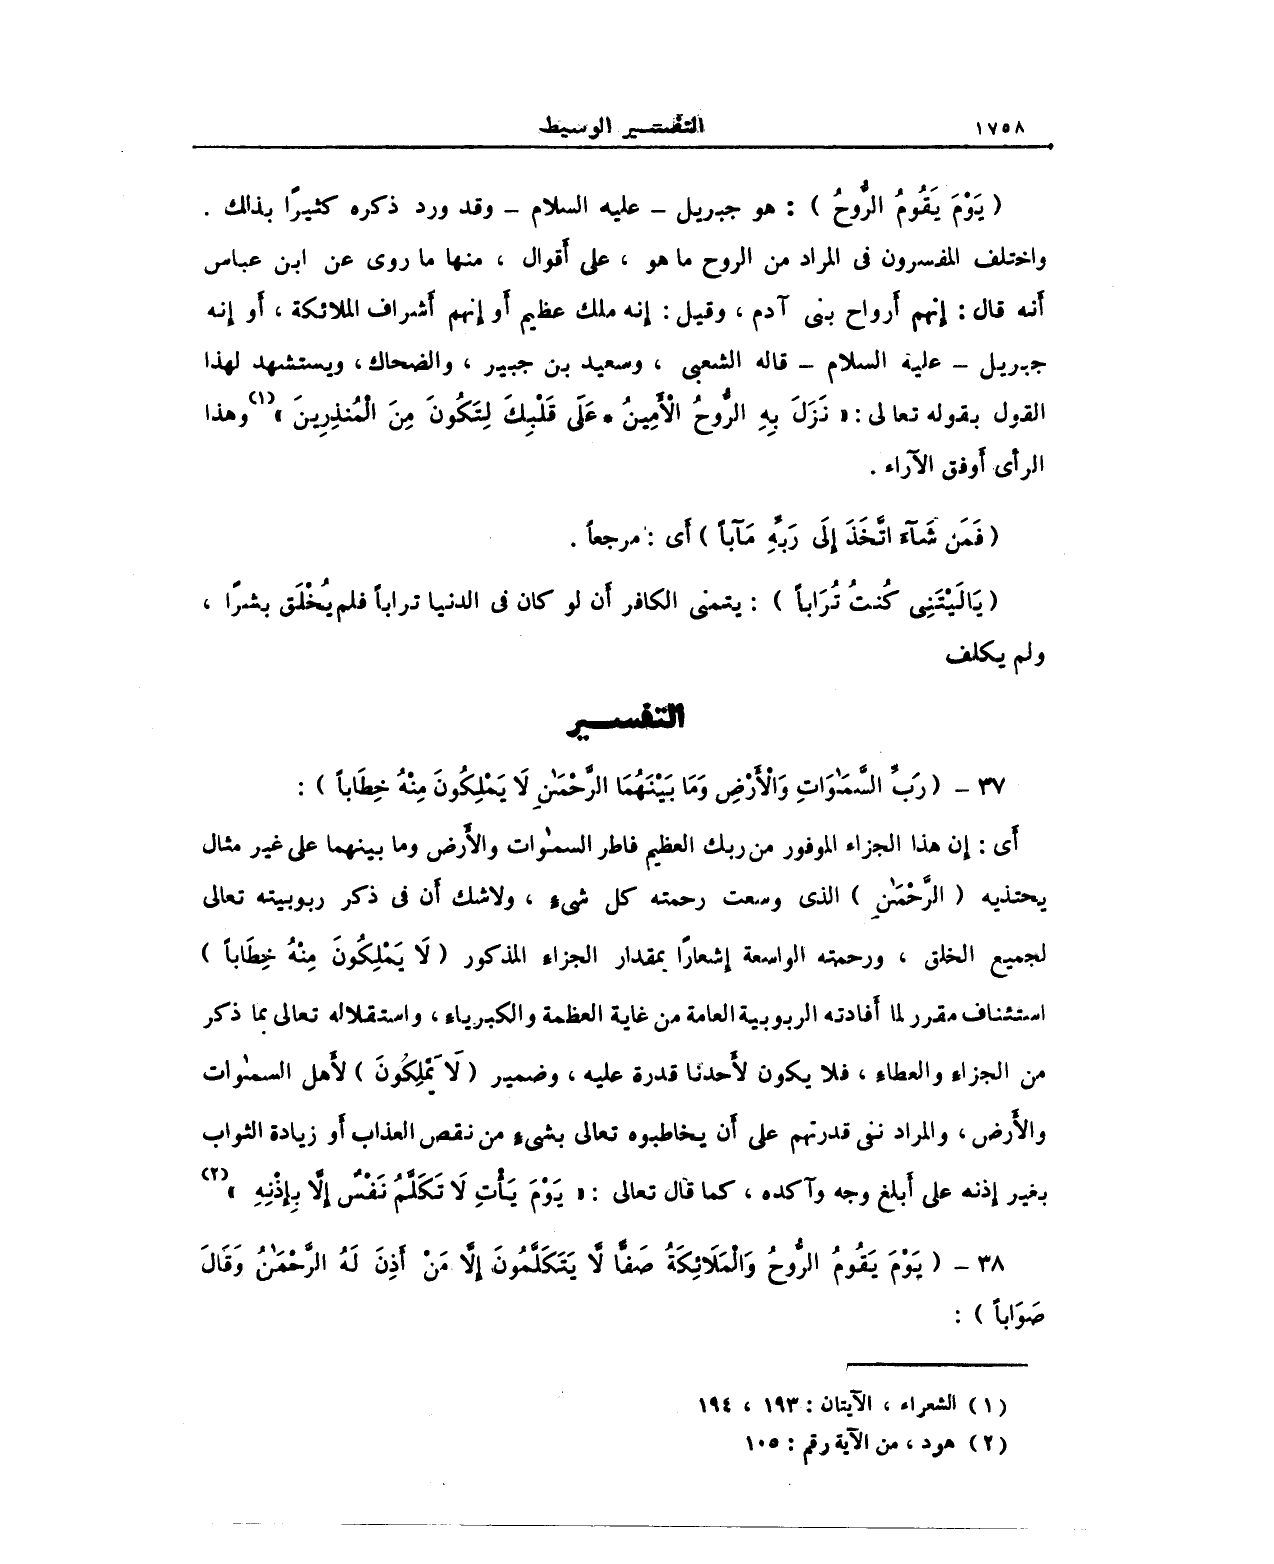 ١٧٥٨ التفسير الوسيط
( يَوْمَ يَقُومُ الرُّوحُ ) : هو جبريل – عليه السلام – وقد ورد ذكره كثيرًا بذلك .
واختلف المفسرون فى المراد من الروح ما هو ، على أقوال ، منها ما روى عن ابن عباس
أنه قال : إنهم أرواح بنى آدم ، وقيل : إنه ملك عظيم أو إنهم أشراف الملائكة ، أو إنه
جبريل – عليه السلام – قاله الشعبى ، وسعيد بن جبير ، والضحاك ، ويستشهد لهذا
القول بقوله تعالى : « نَزَلَ بِهِ الرُّوحُ الْأَمِينُ * عَلَى قَلْبِكَ لِتَكُونَ مِنَ الْمُنذِرِينَ » (١) وهذا
الرأى أوفق الآراء .
( فَمَن شَآءَ اتَّخَذَ إِلَى رَبِّهِ مَآباً ) أى : مرجعاً .
( يَالَيْتَنِى كُنتُ تُرَاباً ) : يتمنى الكافر أن لو كان فى الدنيا تراباً فلم يُخْلَق بشرًا ،
ولم يكلف
التفسير
٣٧ – ( رَبِّ السَّمَٰوَاتِ وَالْأَرْضِ وَمَا بَيْنَهُمَا الرَّحْمَٰنِ لَا يَمْلِكُونَ مِنْهُ خِطَاباً ) :
أى : إن هذا الجزاء الموفور من ربك العظيم فاطر السمٰوات والأرض وما بينهما على غير مثال
يحتذيه ( الرَّحْمَٰنِ ) الذى وسعت رحمته كل شىء ، ولاشك أن فى ذكر ربوبيته تعالى
لجميع الخلق ، ورحمته الواسعة إشعارًا بمقدار الجزاء المذكور ( لَا يَمْلِكُونَ مِنْهُ خِطَاباً )
استئناف مقرر لما أفادته الربوبية العامة من غاية العظمة والكبرياء ، واستقلاله تعالى بما ذكر
من الجزاء والعطاء ، فلا يكون لأحدنا قدرة عليه ، وضمير ( لَا يَمْلِكُونَ ) لأهل السمٰوات
والأرض ، والمراد نفى قدرتهم على أن يخاطبوه تعالى بشىء من نقص العذاب أو زيادة الثواب
بغير إذنه على أبلغ وجه وآكده ، كما قال تعالى : « يَوْمَ يَأْتِ لَا تَكَلَّمُ نَفْسٌ إِلَّا بِإِذْنِهِ » (٢)
٣٨ – ( يَوْمَ يَقُومُ الرُّوحُ وَالْمَلَائِكَةُ صَفًّا لَّا يَتَكَلَّمُونَ إِلَّا مَنْ أَذِنَ لَهُ الرَّحْمَٰنُ وَقَالَ
صَوَاباً ) :
(١) الشعراء ، الآيتان : ١٩٣ ، ١٩٤
(٢) هود ، من الآية رقم : ١٠٥